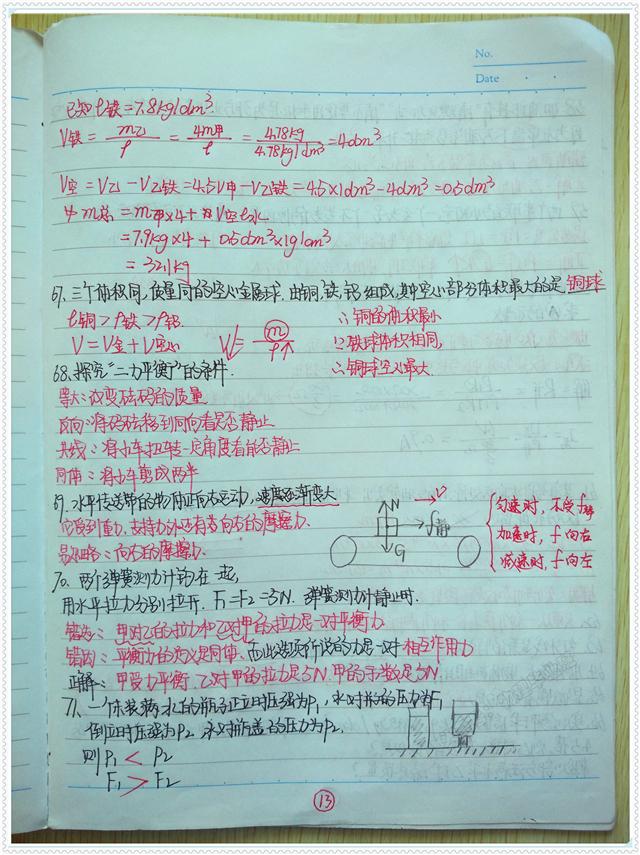 No.
Date
已知ρ铁=7.8kg/dm³
V铁 = m乙/ρ = 4m甲/ρ = 4.78kg/4.78kg/dm³ = 4dm³
V空 = V乙 - V乙铁 = 4.5V甲 - V乙铁 = 4.5×1dm³ - 4dm³ = 0.5dm³
m总 = m甲×4 + V空ρ水
= 7.9kg×4 + 0.5dm³×1g/cm³
= 32.1kg
67. 三个体积同,质量同的空心金属球,由铜,铁,铝组成,其中空心部分体积最大的是 铜球
ρ铜>ρ铁>ρ铝 ∴铜的体积最小
V=V金+V空心 V↓= m/ρ↑ ∵铁球体积相同,
∴铜球空心最大
68. 探究"二力平衡"的条件.
等大:改变砝码的质量
反向:将码砝移到同向看是否静止
共线:将小车扭转一定角度看能否静止
同体:将小车剪成两半
69. 水平传送带的物体正向右运动,速度逐渐变大
它受到重力,支持力外还有着向右的摩擦力.
易错:向右的摩擦力.
N
V
f静
G
匀速时,不受f静
加速时,f向右
减速时,f向左
70. 两个弹簧测力计钩在一起,
用水平拉力分别拉开. F₁=F₂=3N. 弹簧测力计静止时.
错为:甲对乙的拉力和乙对甲的拉力是一对平衡力
错因:平衡力的定义是同体、而此选项所说的力是一对相互作用力
正解:甲受力平衡,乙对甲的拉力是3N,甲的示数是3N.
71. 一个未装满水的瓶子正立时压强为P₁,水对瓶的压力为F₁
倒立时压强为P₂ 水对瓶盖的压力为P₂.
则 P₁ < P₂
F₁ > F₂
13